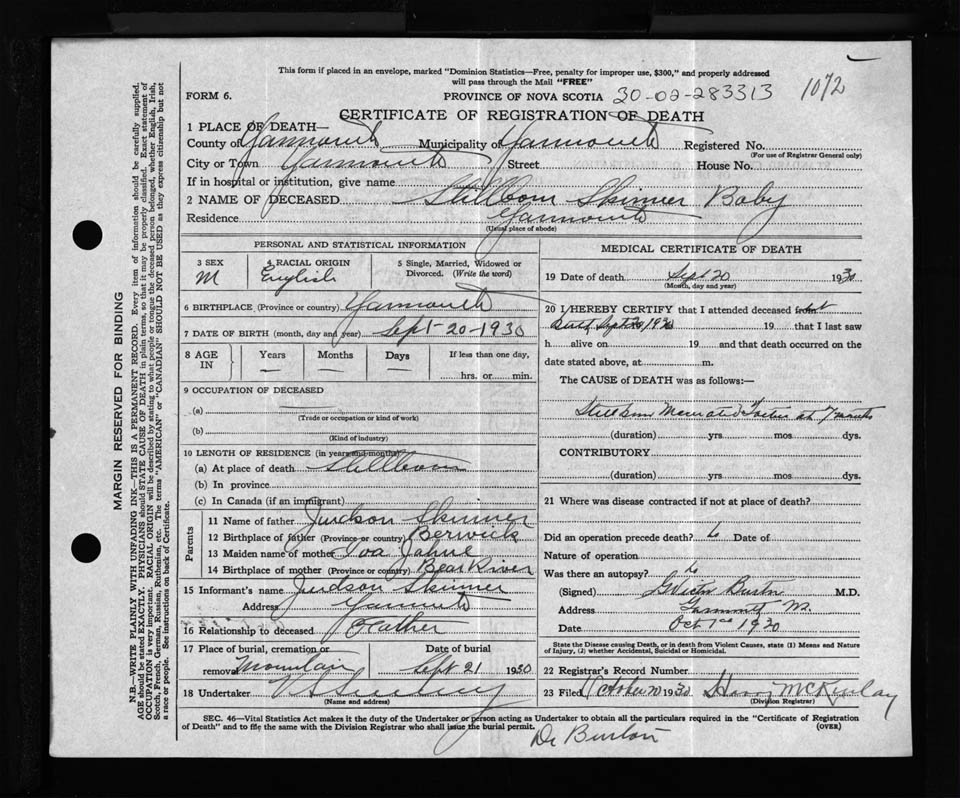 This form if placed in an envelope, marked "Dominion Statistics—Free, penalty for improper use, $300," and properly addressed
will pass through the Mail "FREE"
1072
FORM 6.
PROVINCE OF NOVA SCOTIA 30-02-283313
CERTIFICATE OF REGISTRATION OF DEATH
1 PLACE OF DEATH—
County of Yarmouth Municipality of Yarmouth Registered No.
(For use of Registrar General only)
City or Town Yarmouth Street House No.
If in hospital or institution, give name
2 NAME OF DECEASED Stillborn Skinner Baby
Residence Yarmouth
(Usual place of abode)
PERSONAL AND STATISTICAL INFORMATION
3 SEX
M
4 RACIAL ORIGIN
English
5 Single, Married, Widowed or
Divorced. (Write the word)
6 BIRTHPLACE (Province or country) Yarmouth
7 DATE OF BIRTH (month, day and year) Sept-20-1930
8 AGE
IN
Years
—
Months
—
Days
—
If less than one day,
hrs. or min.
9 OCCUPATION OF DECEASED
(a)
(Trade or occupation or kind of work)
(b)
(Kind of industry)
10 LENGTH OF RESIDENCE (in years and months)
(a) At place of death Stillborn
(b) In province
(c) In Canada (if an immigrant)
Parents
11 Name of father Judson Skinner
12 Birthplace of father (Province or country) Berwick
13 Maiden name of mother
14 Birthplace of mother (Province or country) Bear River
15 Informant's name Judson Skinner
Address Yarmouth
16 Relationship to deceased Father
17 Place of burial, cremation or
removal Mountain
Date of burial
Sept 21 1930
18 Undertaker
(Name and address)
MEDICAL CERTIFICATE OF DEATH
19 Date of death Sept 20 1930
(Month, day and year)
20 I HEREBY CERTIFY that I attended deceased from at
Birth Sept 20/1930 19 that I last saw
h alive on 19 and that death occurred on the
date stated above, at m.
The CAUSE of DEATH was as follows:—
Stillborn Macerated Foetus at 7 months
(duration) yrs. mos. dys.
CONTRIBUTORY
(duration) yrs. mos. dys.
21 Where was disease contracted if not at place of death?
Did an operation precede death? Date of
Nature of operation
Was there an autopsy? No
(Signed) Burton M.D.
Address
Date Oct 1st 1930
State the Disease causing Death, or in death from Violent Causes, state (1) Means and Nature
of Injury, (2) whether Accidental, Suicidal or Homicidal.
22 Registrar's Record Number
23 Filed October 1930 McKinlay
(Division Registrar)
SEC. 46—Vital Statistics Act makes it the duty of the Undertaker or person acting as Undertaker to obtain all the particulars required in the "Certificate of Registration
of Death" and to file the same with the Division Registrar who shall issue the burial permit.
(OVER)
Dr Burton
MARGIN RESERVED FOR BINDING
N.B.—WRITE PLAINLY WITH UNFADING INK—THIS IS A PERMANENT RECORD. Every item of information should be carefully supplied.
AGE should be stated EXACTLY. PHYSICIANS should STATE CAUSE OF DEATH in plain terms, so that it may be properly classified. Exact statement of
OCCUPATION is very important. RACIAL ORIGIN will be described by stating to what people or tongue the deceased person belonged, whether English, Irish,
Scotch, French, German, Russian, Ruthenian, etc. The terms "AMERICAN" or "CANADIAN" SHOULD NOT BE USED as they express citizenship but not
a race or people. See instructions on back of Certificate.